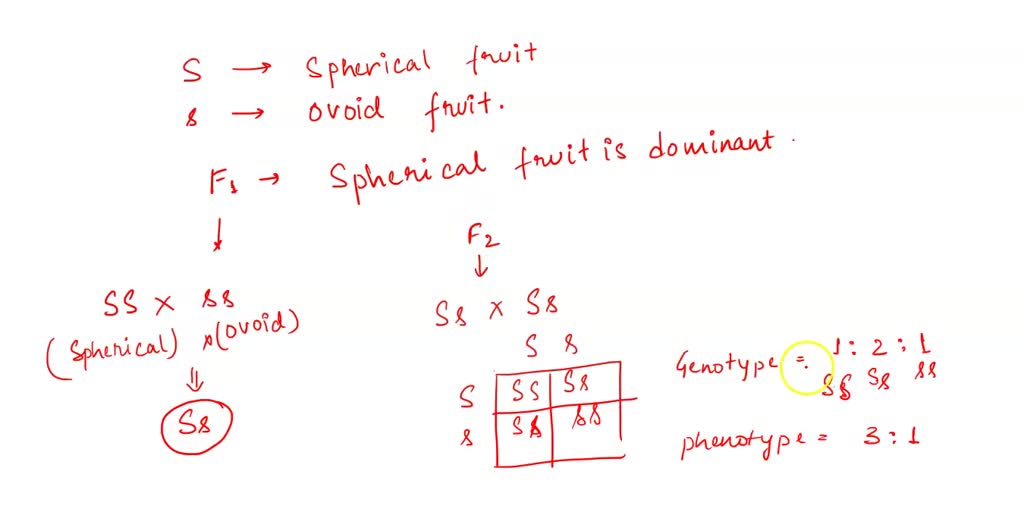 S → Spherical fruit
s → Ovoid fruit.
F1 → Spherical fruit is dominant.
↓
F2
↓
SS × ss
(Spherical) × (Ovoid)
⇓
Ss
Ss × Ss
S s
S SS Ss
s Ss ss
Genotype = 1 : 2 : 1
SS Ss ss
phenotype = 3 : 1